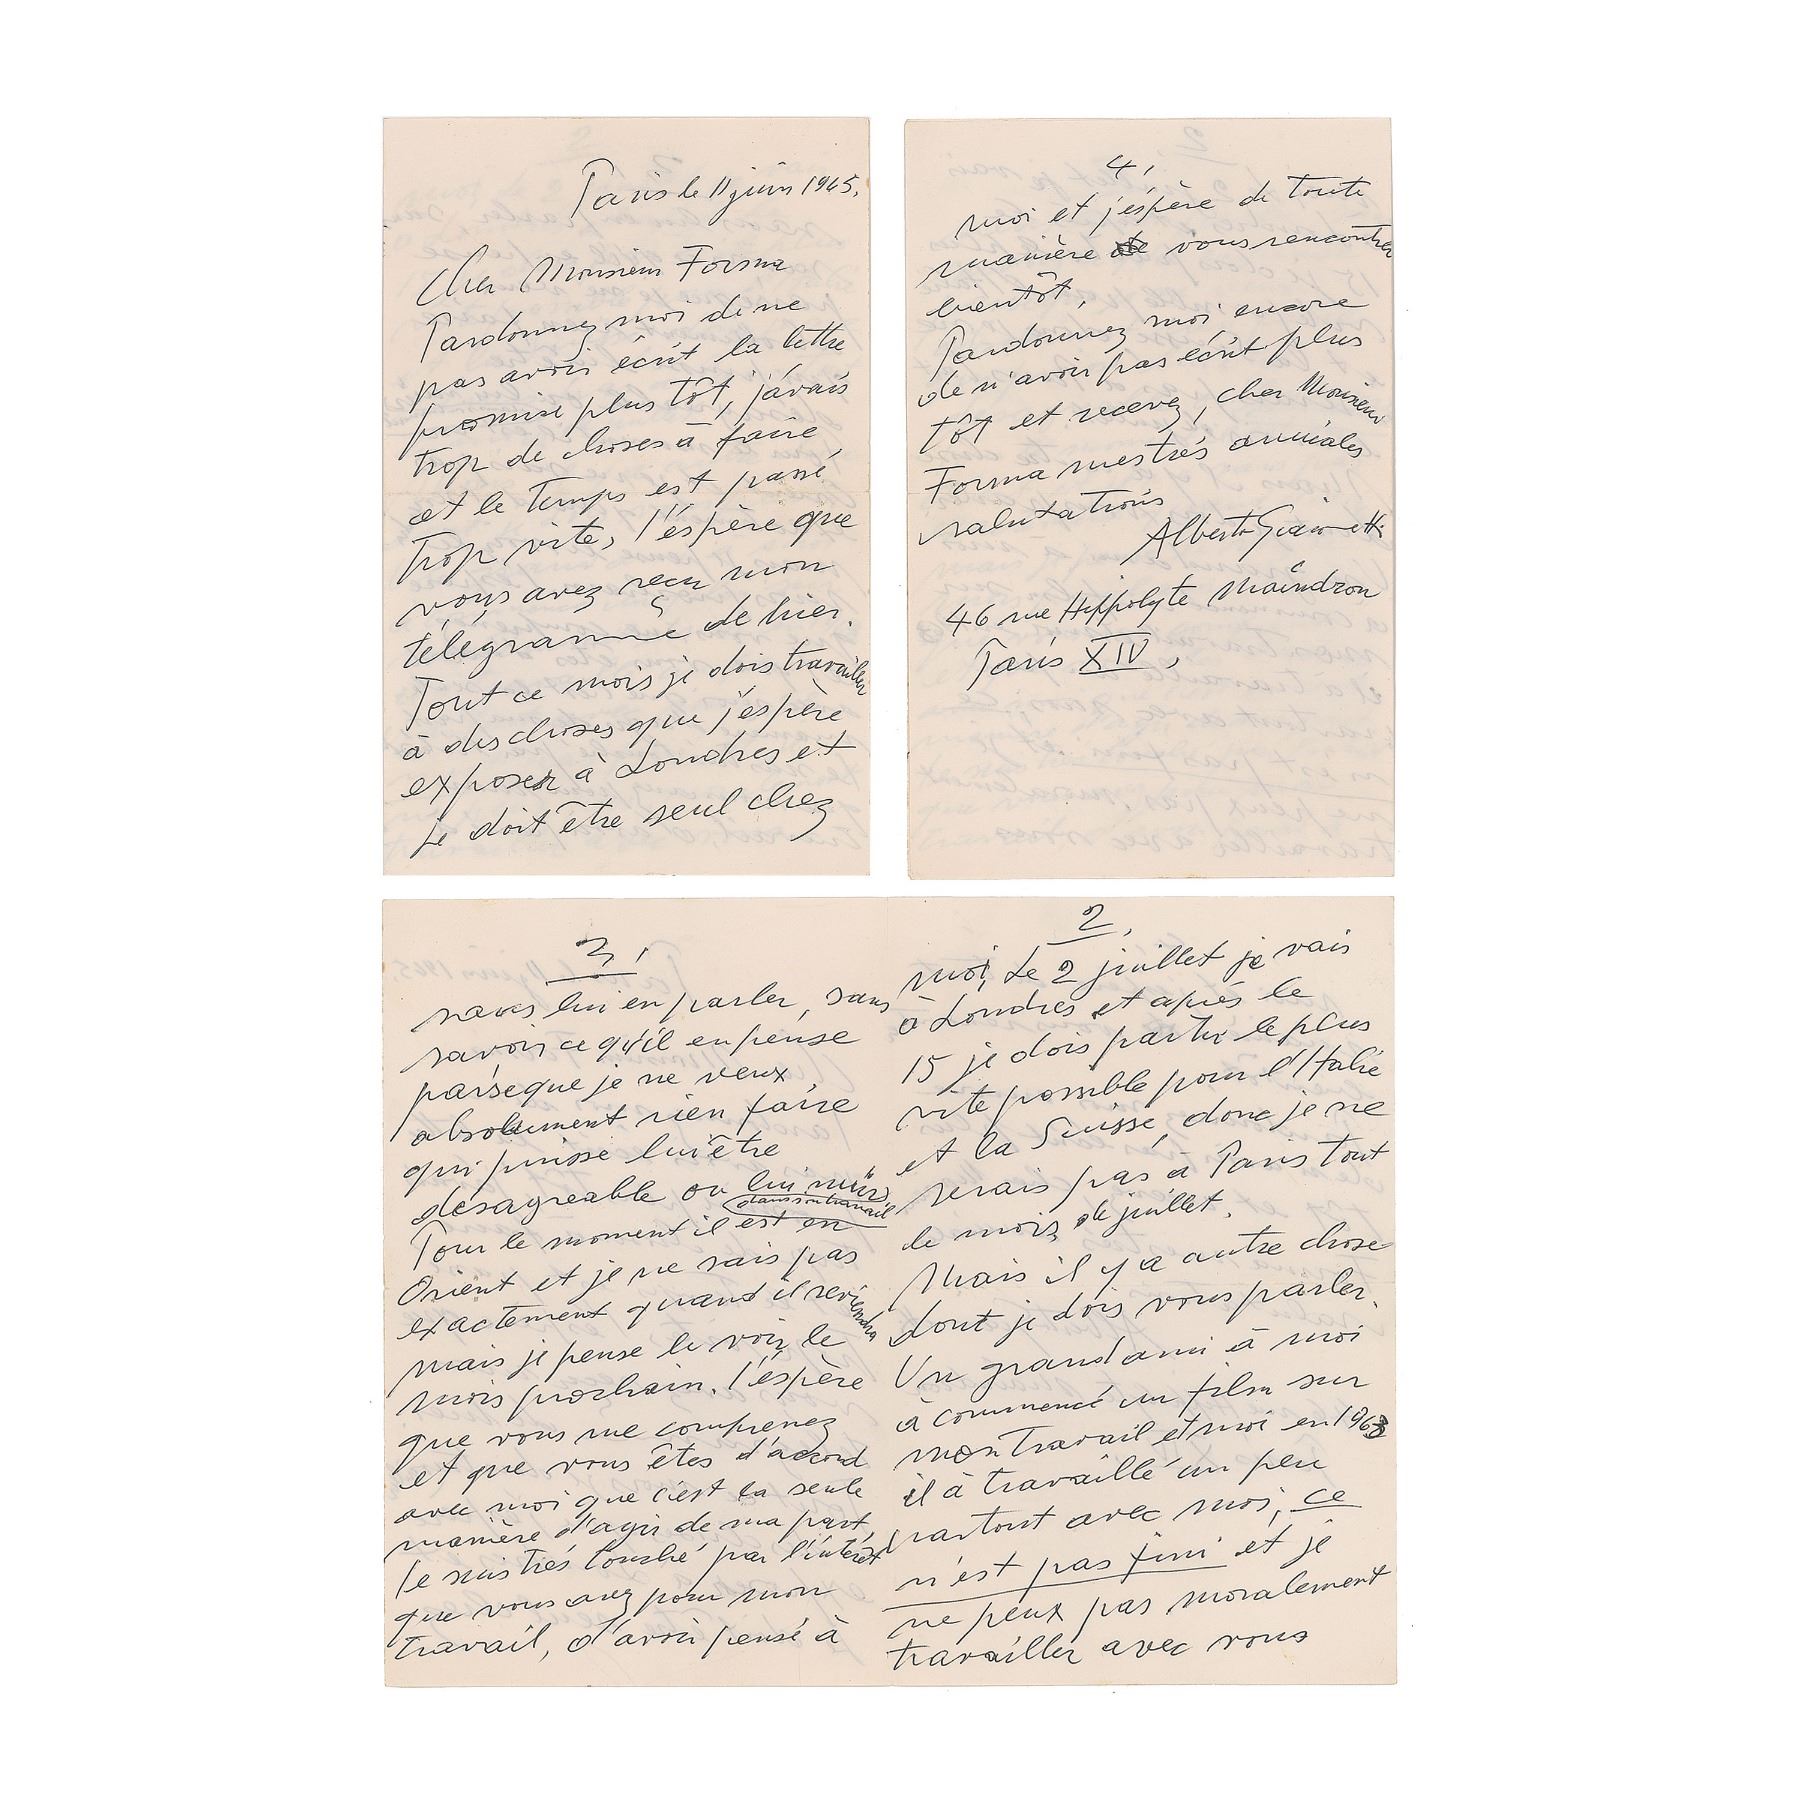 Paris le 11 juin 1965.
Cher Monsieur Forma
Pardonnez moi de ne
pas avoir écrit la lettre
promise plus tôt, j'avais
trop de choses à faire
et le temps est passé
trop vite, J'éspère que
vous avez reçu mon
télégramme de hier.
Tout ce mois je dois travailler
à des choses que j'éspère
exposer à Londres et
je doit être seul chez
2.
moi, Le 2 juillet je vais
à Londres et après le
15 je dois partir le plus
vite possible pour l'Italie
et la Suisse, donc je ne
serais pas à Paris tout
le mois de juillet.
Mais il y a autre chose
dont je dois vous parler.
Un grand ami à moi
à commencé un film sur
mon travail et moi en 1963
il à travaillé un peu
partout avec moi, ce
n'est pas fini et je
ne peux pas moralement
travailler avec vous
3.
sans lui en parler, sans
savoir ce qu'il en pense
parseque je ne veux
absolument rien faire
qui puisse lui être
desagreable ou lui nuir
dans son travail
Pour le moment il est en
Orient et je ne sais pas
exactement quand il reviendra
mais je pense le voir le
mois prochain. J'éspère
que vous me comprenez
et que vous êtes d'accord
avec moi que c'est la seule
manière d'agir de ma part,
Je suis trés touché par l'intérêt
que vous avez pour mon
travail, d'avoir pensé à
4.
moi et j'éspère de toute
manière vous rencontrer
bientôt,
Pardonnez moi encore
de n'avoir pas écrit plus
tôt et recevez, cher Monsieur
Forma mes trés amicales
salutations
Alberto Giacometti
46 rue Hippolyte Maindron
Paris XIV,